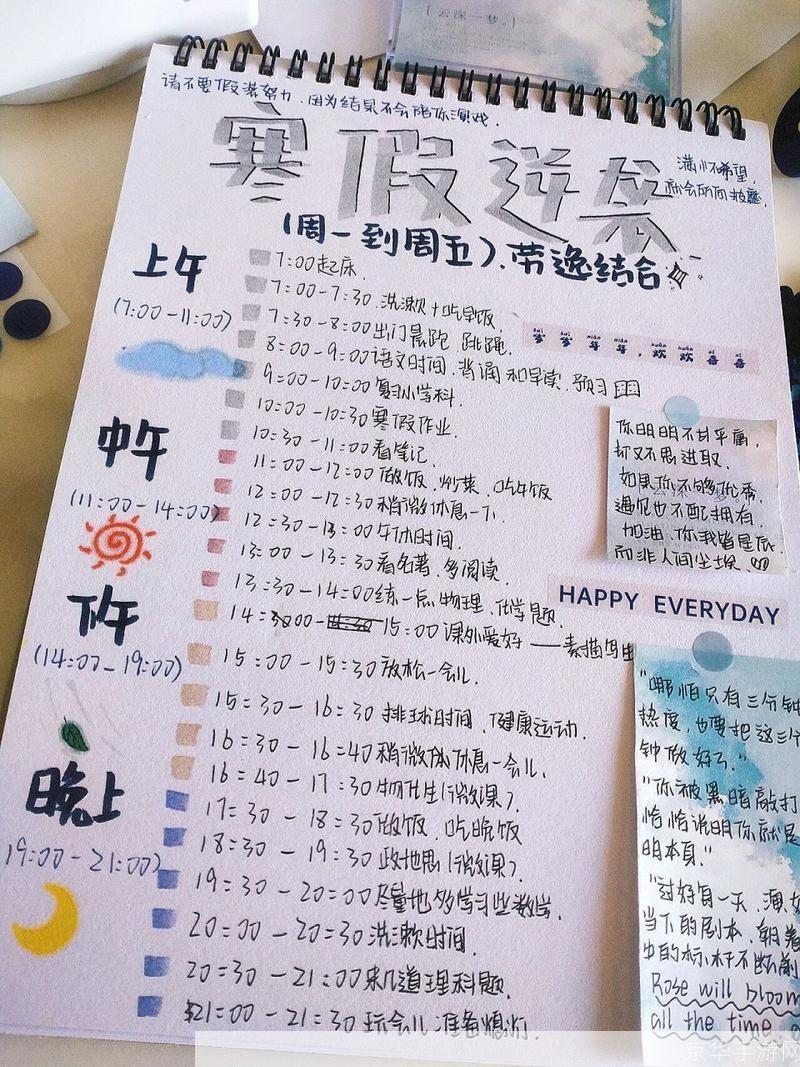 云深一梦。
请不要假装努力,因为结果不会陪你演戏.
寒假逆袭
满怀希望,
就会所向披靡.
(周一到周五)、劳逸结合
上午
(7:00-11:00)
7:00起床.
7:00-7:30 洗漱+吃早饭.
7:30-8:00出门晨跑、跳绳.
8:00-9:00语文时间、背诵和早读、预习
9:00-10:00复习小学科.
10:00-10:30寒假作业.
10:30-11:00看笔记.
suì suì nián nián huān huān xǐ xǐ
岁岁年年,欢欢喜喜
中午
(11:00-14:00)
11:00-12:00做饭、炒菜、吃午饭
12:00-12:30稍微休息一下.
12:30-13:00午休时间.
13:00-13:30看名著、多阅读.
13:30-14:00练一点物理、化学题.
你明明不甘平庸,
却又不思进取.
如果你不够优秀,
遇见也不配拥有.
加油、你我皆星辰,
而非人间尘埃.
HAPPY EVERYDAY
下午
(14:00-19:00)
14:00-15:00课外爱好——素描写生
15:00-15:30放松一会儿.
15:30-16:30排球时间、健康运动.
16:30-16:40稍微休息一会儿.
16:40-17:30物化生(微课).
晚上
19:00-21:00)
17:30-18:30做饭、吃晚饭
18:30-19:30政地思(微课).
19:30-20:00尽量地多学习些数学.
20:00-20:30洗漱时间.
20:30-21:00来几道理科题.
21:00-21:30玩会儿准备熄灯.
"哪怕只有三分钟
热度,也要把这三个
钟做好了."
"你被黑暗敲打
恰恰说明你就是
明本身."
"过好每一天、演好
当下的剧本、朝着
中的标杆不断前
Rose will bloom
all the time.
京华手游网